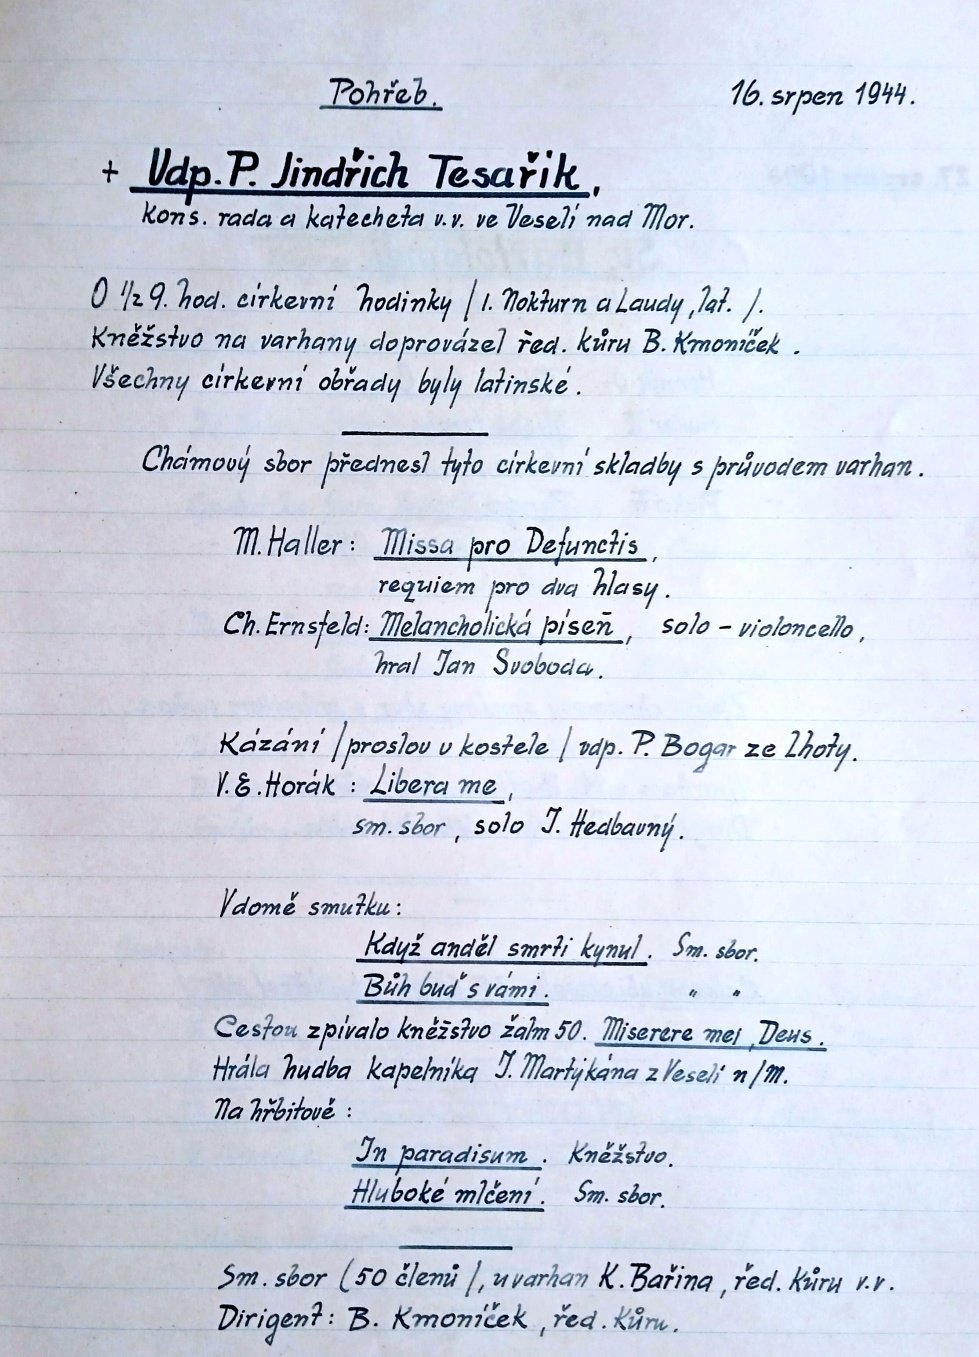 Pohřeb. 16. srpen 1944.
+ Vdp. P. Jindřich Tesařík,
kons. rada a katecheta v.v. ve Veselí nad Mor.
O 1/2 9. hod. církevní hodinky / 1. Nokturn a Laudy, lat. /.
Kněžstvo na varhany doprovázel řed. kůru B. Kmoníček.
Všechny církevní obřady byly latinské.
Chámový sbor přednesl tyto církevní skladby s průvodem varhan.
M. Haller: Missa pro Defunctis,
requiem pro dva hlasy.
Ch. Ernsfeld: Melancholická píseň, solo - violoncello,
hrál Jan Svoboda.
Kázání / proslov v kostele / vdp. P. Bogar ze Lhoty.
V. E. Horák: Libera me,
sm. sbor, solo J. Hedbavný.
V domě smutku:
Když anděl smrti kynul. Sm. sbor.
Bůh buď s vámi. " "
Cestou zpívalo kněžstvo žalm 50. Miserere mei, Deus.
Hrála hudba kapelníka J. Martykána z Veselí n/M.
Na hřbitově:
In paradisum. Kněžstvo.
Hluboké mlčení. Sm. sbor.
Sm. sbor (50 členů /, u varhan K. Bařina, řed. kůru v.v.
Dirigent: B. Kmoníček, řed. kůru.